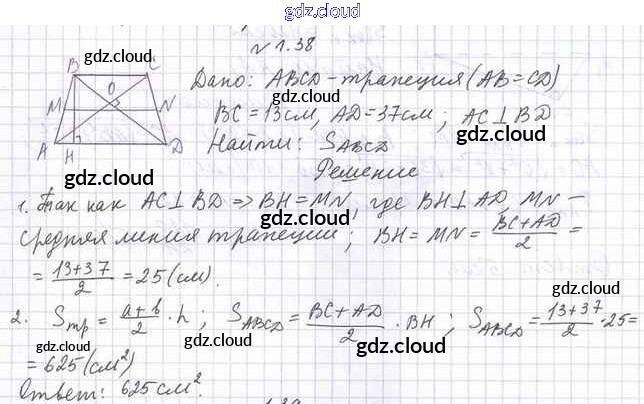 gdz.cloud
№ 1.38
gdz.cloud
B C
O
M N
A H D
Дано: ABCD - трапеция (AB = CD)
gdz.cloud
BC = 13 см, AD = 37 см; AC ⊥ BD
gdz.cloud
Найти: S_ABCD
gdz.cloud
Решение
gdz.cloud
1. Так как AC ⊥ BD => BH = MN, где BH ⊥ AD, MN -
gdz.cloud
средняя линия трапеции; BH = MN = (BC + AD)/2 =
= (13 + 37)/2 = 25 (см).
gdz.cloud
gdz.cloud
2. Sтр = (a + b)/2 · h; S_ABCD = (BC + AD)/2 · BH; S_ABCD = (13 + 37)/2 · 25 =
gdz.cloud
gdz.cloud
gdz.cloud
= 625 (см²)
Ответ: 625 см².
1.39